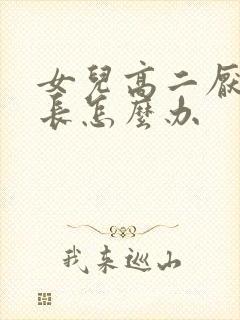 女兒高二厭
長怎麼办
我来巡山